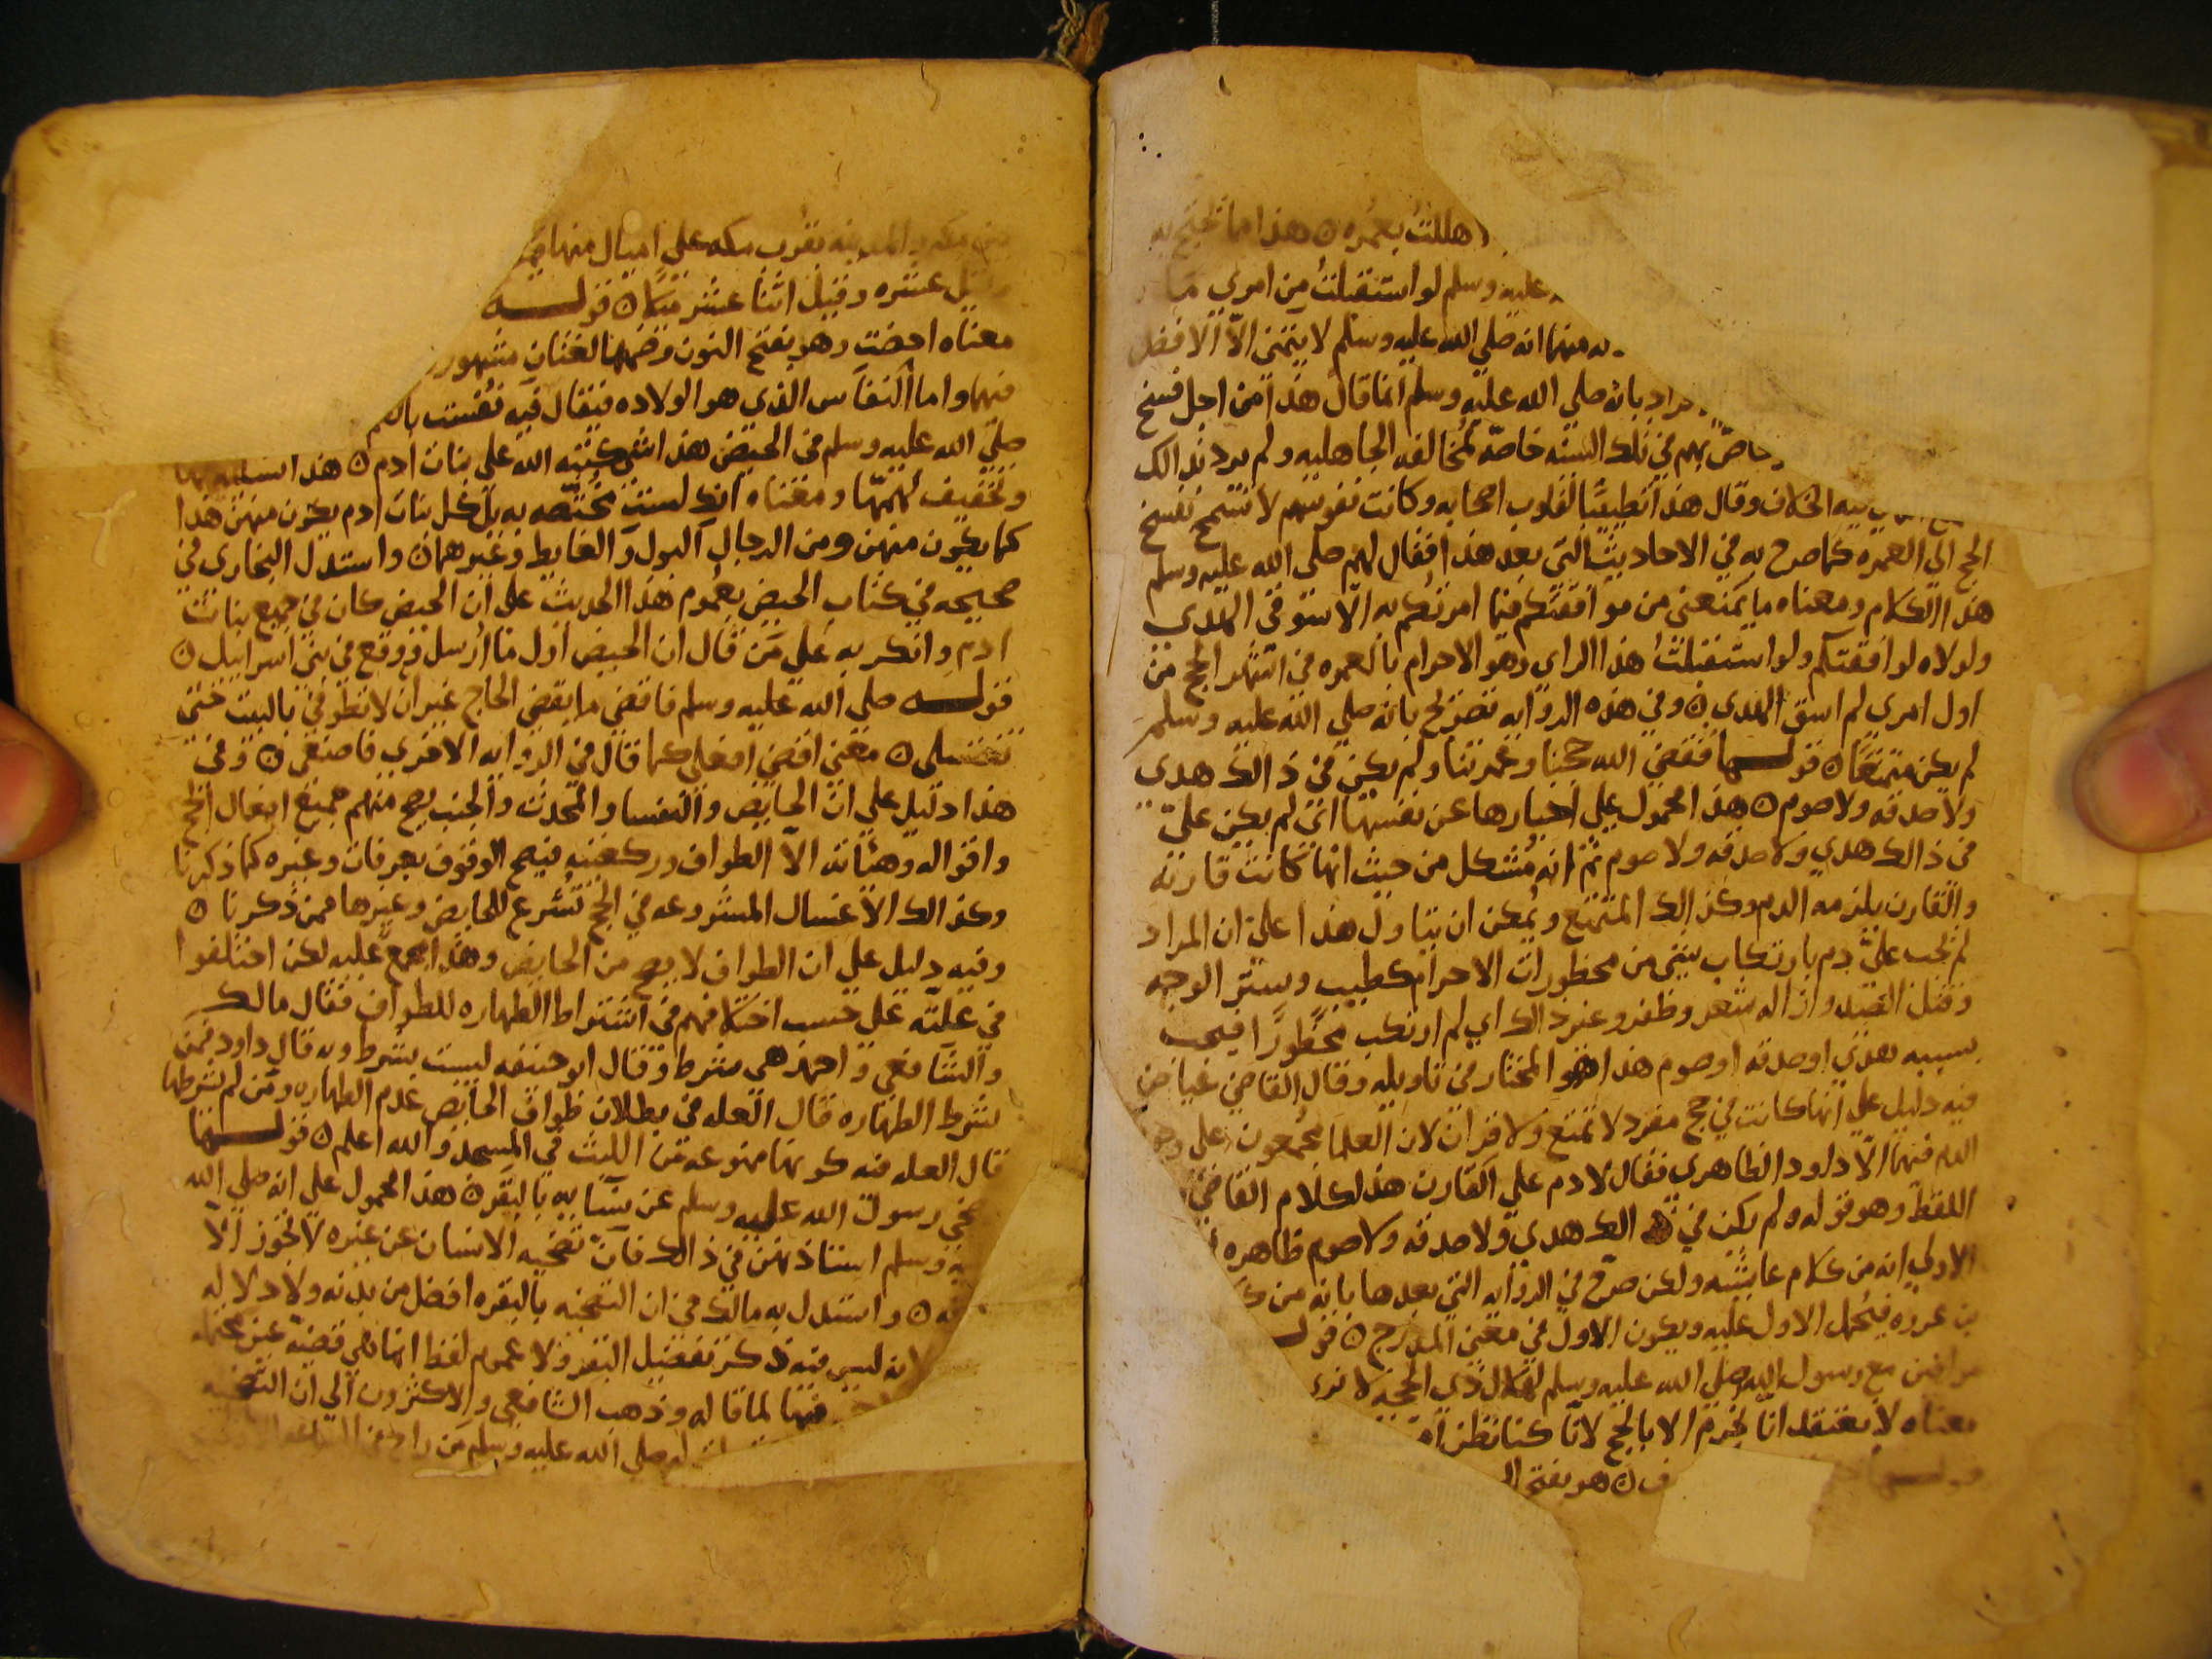 اهللت بعمره ۞ هذا مما يحتج به
عليه وسلم لو استقبلت من امري ما
منها انه صلي الله عليه وسلم لا يتمني الا الافضل
بانه صلي الله عليه وسلم انما قال هذا من اجل فسخ
خاص بهم في تلك السنه خاصه لمخالفه الجاهليه ولم يرد بذالك
فيه الخلاف وقال هذا تطييبا لقلوب اصحابه وكانت نفوسهم لا تسمح بفسخ
الحج الي العمره كما صرح به في الاحاديث التي بعد هذا فقال لهم صلي الله عليه وسلم
هذا الكلام ومعناه ما يمنعني من موافقتكم فيما امرتكم به الا سوقي الهدي
ولولاه لوافقتكم ولو استقبلت هذا الراي وهو الاحرام بالعمره في اشهر الحج من
اول امري لم اسق الهدي ۞ وفي هذه الروايه تصريح بانه صلي الله عليه وسلم
لم يكن متمتعا ۞ قولها فقضي الله حجنا وعمرتنا ولم يكن في ذالك هدي
ولا صدقه ولا صوم ۞ هذا محمول علي اخبارها عن نفسها اي لم يكن علي
في ذالك هدي ولا صدقه ولا صوم ثم انه مشكل من حيث انها كانت قارنه
والقارن يلزمه الدم وكذالك المتمتع ويمكن ان يتاول هذا علي ان المراد
لم يجب علي دم بارتكاب شي من محظورات الاحرام كطيب وستر الوجه
وقتل الصيد وازاله شعر وظفر وغير ذالك اي لم ارتكب محظورا فيجب
بسببه هدي او صدقه او صوم هذا هو المختار في تاويله وقال القاضي عياض
فيه دليل علي انها كانت في حج مفرد لا تمتع ولا قران لان العلما مجمعون علي وجوب
الدم فيهما الا داود الظاهري فقال لا دم علي القارن هذا كلام القاضي
اللفظ وهو قوله ولم يكن في ذالك هدي ولا صدقه ولا صوم ظاهره
الاولي انه من كلام عايشه ولكن صرح في الروايه التي بعدها بانه من
بن عروه فيحمل الاول عليه ويكون الاول في معني المدرج ۞ قولها
موافين مع رسول الله صلي الله عليه وسلم لهلال ذي الحجه لا نري
معناه لا نعتقد انا نحرم الا بالحج لانا كنا نظن
قولها
ف ۞ هو بفتح
بين مكه والمدينه بقرب مكه علي اميال منها
وقيل عشره وقيل اثنا عشر ميلا ۞ قوله
معناه احضت وهو بفتح النون وضمها لغتان مشهور
فيهما واما النفاس الذي هو الولاده فيقال فيه نفست بالضم
صلي الله عليه وسلم في الحيض هذا شي كتبه الله علي بنات ادم ۞ هذا تسليه لها
وتخفيف لهمها ومعناه انك لست مختصه به بل كل بنات ادم يكون منهن هذا
كما يكون منهن ومن الرجال البول والغايط وغيرهما ۞ واستدل البخاري في
صحيحه في كتاب الحيض بعموم هذا الحديث علي ان الحيض كان في جميع بنات
ادم وانكر به علي من قال ان الحيض اول ما ارسل ووقع في بني اسرايل ۞
قوله صلي الله عليه وسلم فاقضي ما يقضي الحاج غير ان لا تطوفي بالبيت حتي
تغتسلي ۞ معني اقضي افعلي كما قال في الروايه الاخري فاصنعي ۞ وفي
هذا دليل علي ان الحايض والنفسا والمحدث والجنب يصح منهم جميع افعال الحج
واقواله وهياته الا الطواف وركعتيه فيصح الوقوف بعرفات وغيره كما ذكرنا
وكذالك الاغسال المشروعه في الحج تشرع للحايض وغيرها ممن ذكرنا ۞
وفيه دليل علي ان الطواف لا يصح من الحايض وهذا مجمع عليه لكن اختلفوا
في علته علي حسب اختلافهم في اشتراط الطهاره للطواف فقال مالك
والشافعي واحمد هي شرط وقال ابو حنيفه ليست بشرط وبه قال داود فمن
شرط الطهاره قال العله في بطلان طواف الحايض عدم الطهاره ومن لم يشرطها
قال العله فيه كونها ممنوعه من اللبث في المسجد والله اعلم ۞ قولها
ضحي رسول الله عليه وسلم عن نسايه بالبقر ۞ هذا محمول علي انه صلي الله
وسلم استاذنهن في ذالك فان تضحيه الانسان عن غيره لا تجوز الا
۞ واستدل به مالك في ان التضحيه بالبقره افضل من بدنه ولا دلاله
لانه ليس فيه ذكر تفضيل البقر ولا عموم لفظ انما هي قضيه عين
فيها لما قاله وذهب الشافعي والاكثرون الي ان التضحيه
صلي الله عليه وسلم من راح في